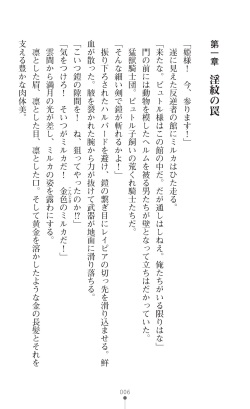 第一章　淫紋の罠
「姫様！　今、参ります！」
遂に見えた反逆者の館にミルカはひた走る。
「来たな。ピュトル様はこの館の中だ。だが通しはしねえ。俺たちがいる限りはな」
門の前には動物を模したヘルムを被る男たちが壁となって立ちはだかっていた。
猛獣騎士団。ピュトル子飼いの荒くれ騎士たちだ。
「そんな細い剣で鎧が斬れるかよ！」
振り下ろされたハルバードを避け、鎧の繋ぎ目にレイピアの切っ先を滑り込ませる。鮮
血が散った。腋を裂かれた腕から力が抜けて武器が地面に滑り落ちる。
「こいつ鎧の隙間を！　ね、狙ってやったのか!?」
「気をつけろ！　そいつがミルカだ！　金色のミルカだ！」
雲間から満月の光が差し、ミルカの姿を露わにする。
凛とした眉、凛とした目、凛とした口。そして黄金を溶かしたような金の長髪とそれを
支える豊かな肉体美。
006